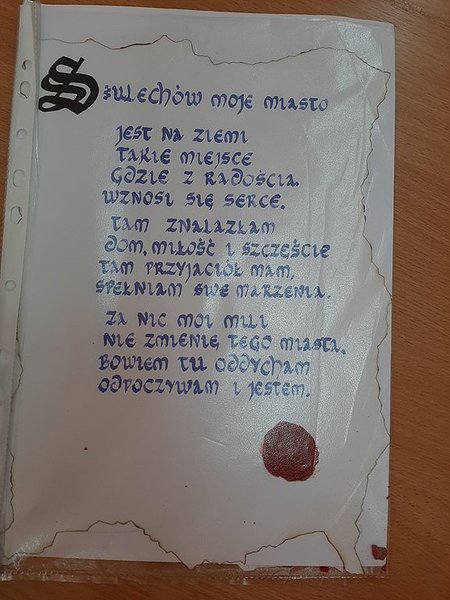 Sulechów moje miasto
Jest na ziemi
takie miejsce
gdzie z radością
wznosi się serce.
Tam znalazłam
dom, miłość i szczęście
tam przyjaciół mam,
spełniam swe marzenia.
Za nic moi mili
nie zmienię tego miasta,
bowiem tu oddycham
odpoczywam i jestem.